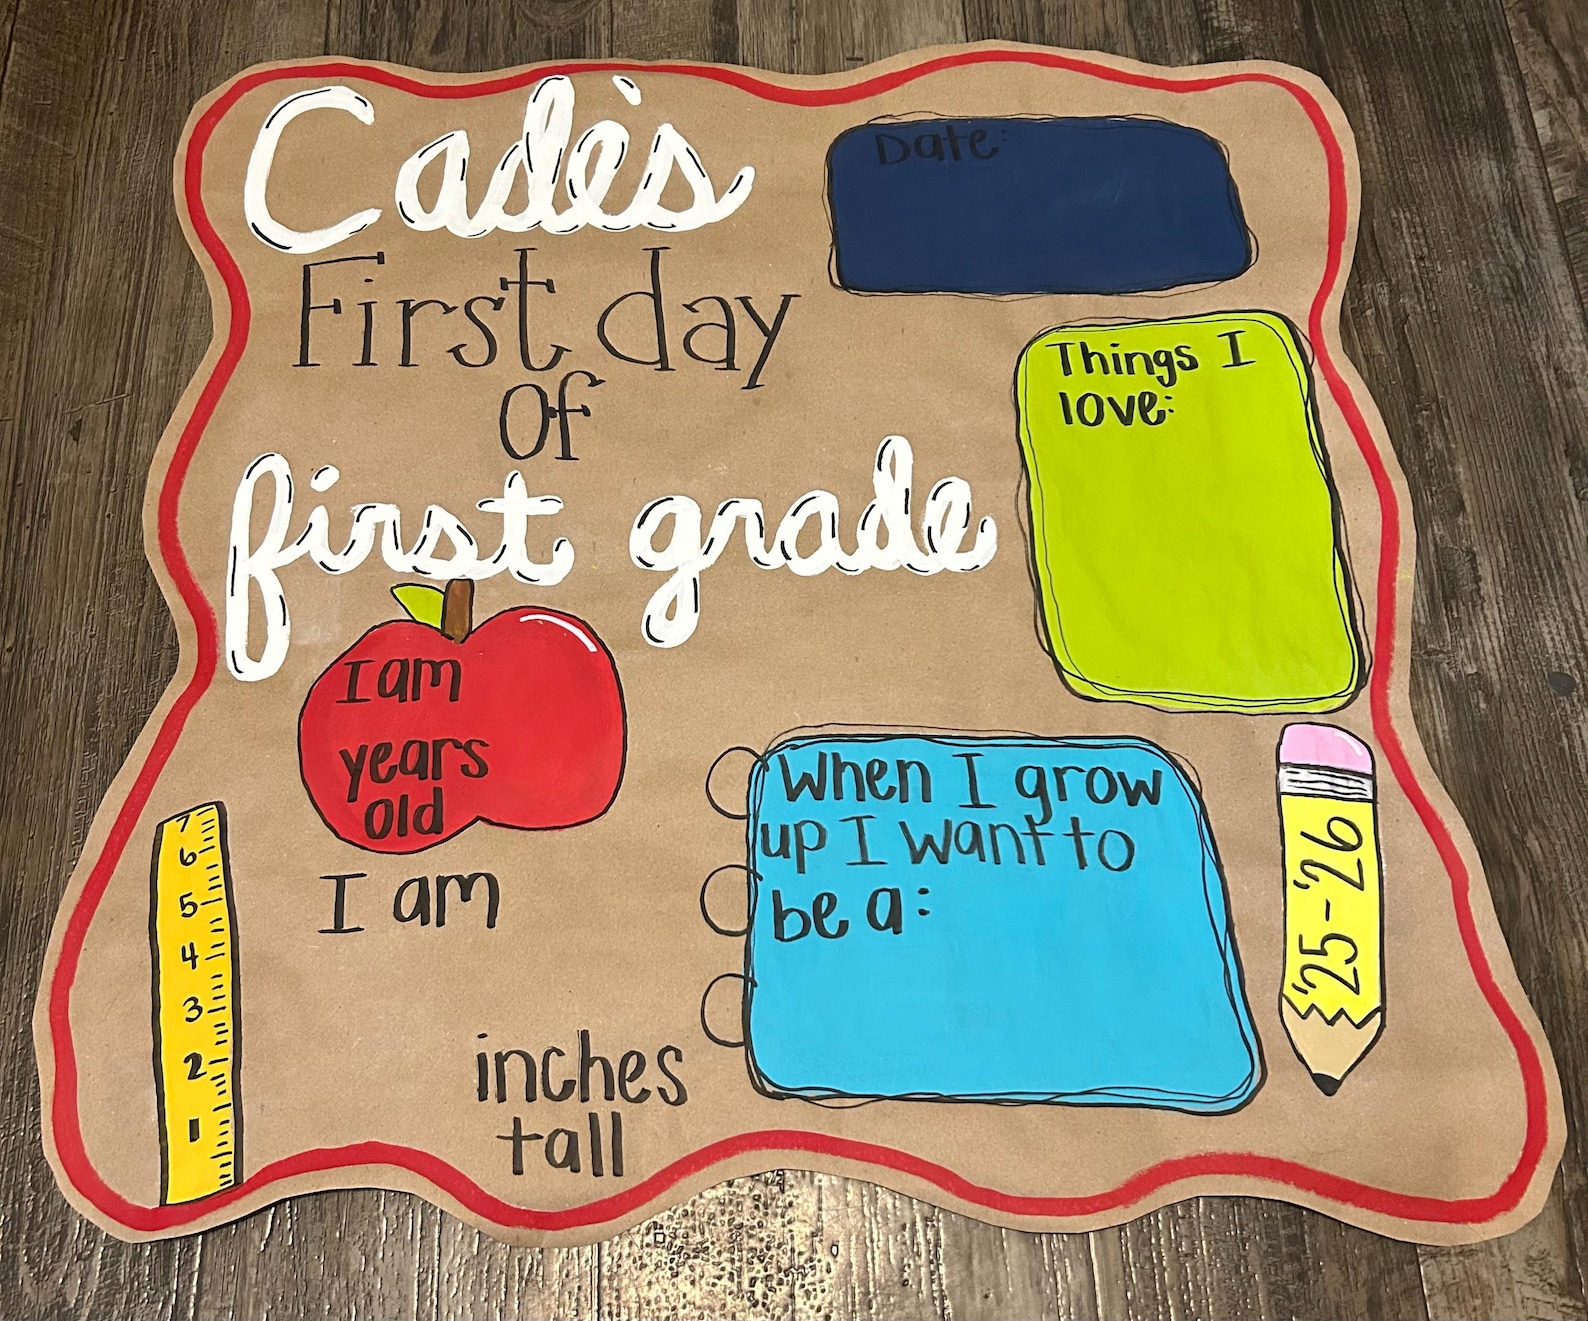 Cade's
First day
of
first grade
Date:
Things I
love:
I am
years
old
I am
inches
tall
When I grow
up I want to
be a:
'25-'26
7
6
5
4
3
2
1